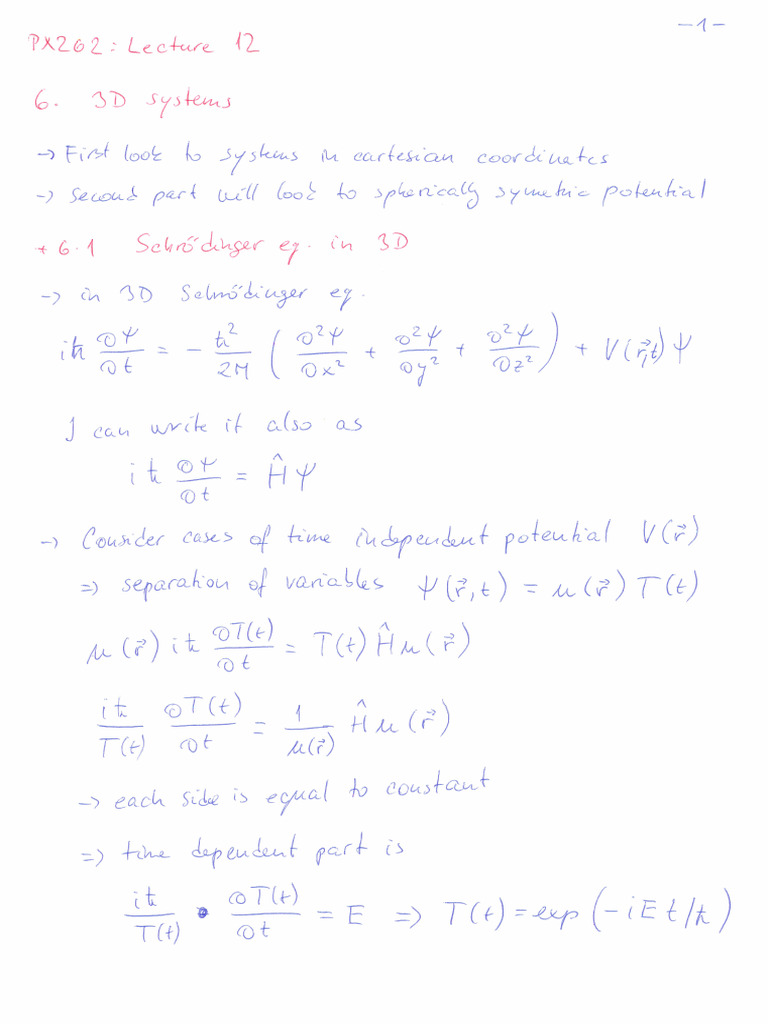 -1-
PX262: Lecture 12
6. 3D systems
→ First look to systems in cartesian coordinates
→ Second part will look to spherically symetric potential
+ 6.1 Schrödinger eq. in 3D
→ in 3D Schrödinger eq.
iħ ∂Ψ/∂t = - ħ²/2M (∂²Ψ/∂x² + ∂²Ψ/∂y² + ∂²Ψ/∂z²) + V(r⃗,t) Ψ
I can write it also as
iħ ∂Ψ/∂t = Ĥ Ψ
→ Consider cases of time independent potential V(r⃗)
⇒ separation of variables Ψ(r⃗,t) = u(r⃗) T(t)
u(r⃗) iħ ∂T(t)/∂t = T(t) Ĥ u(r⃗)
iħ/T(t) ∂T(t)/∂t = 1/u(r⃗) Ĥ u(r⃗)
→ each side is equal to constant
⇒ time dependent part is
iħ/T(t) • ∂T(t)/∂t = E ⇒ T(t) = exp(-iEt/ħ)